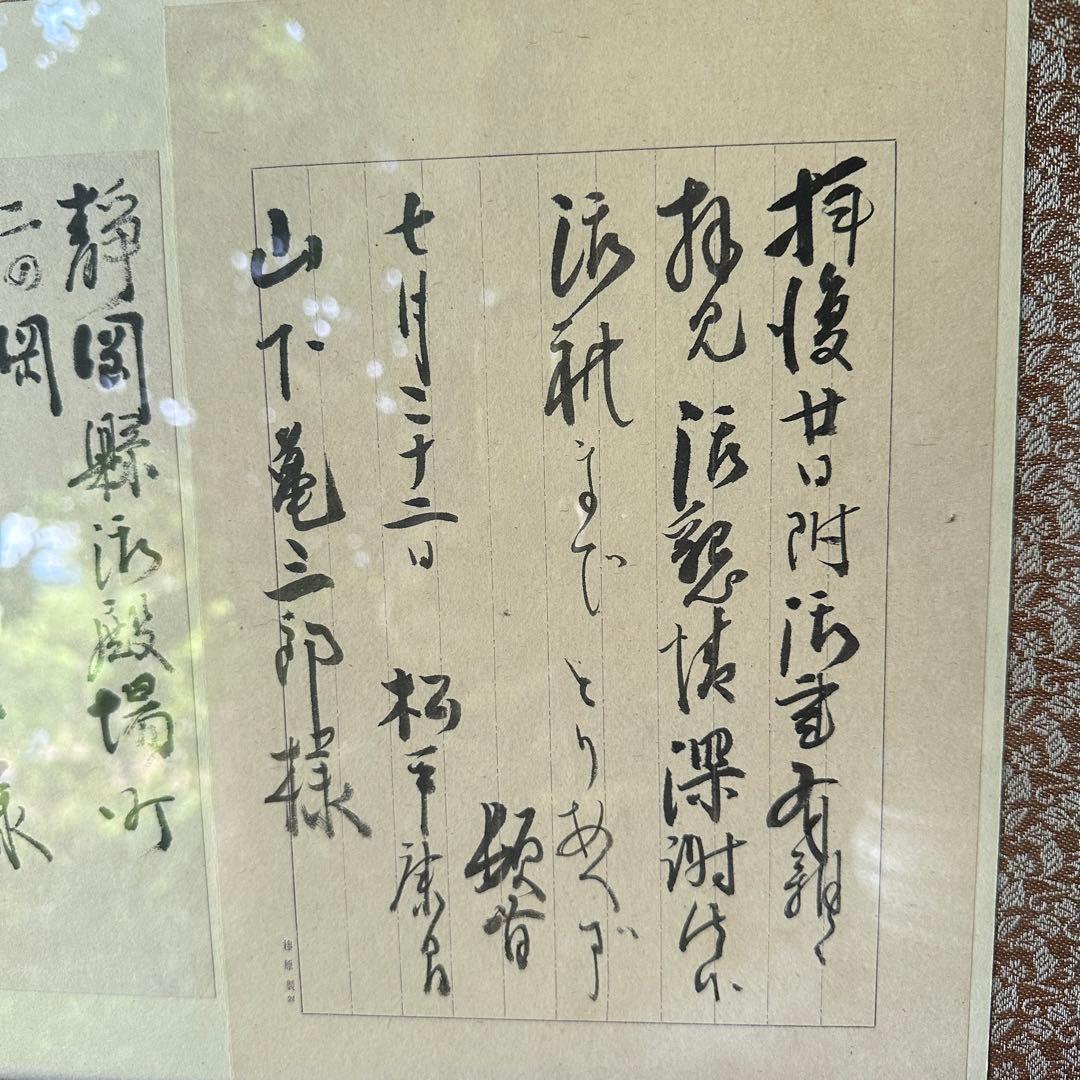 拝復廿日附御書有難く
拝見御懇情深謝仕候
御礼まで とりあへず
頓首
七月二十二日 松平康昌
山下亀三郎様
静岡縣御殿場町
二の岡
様